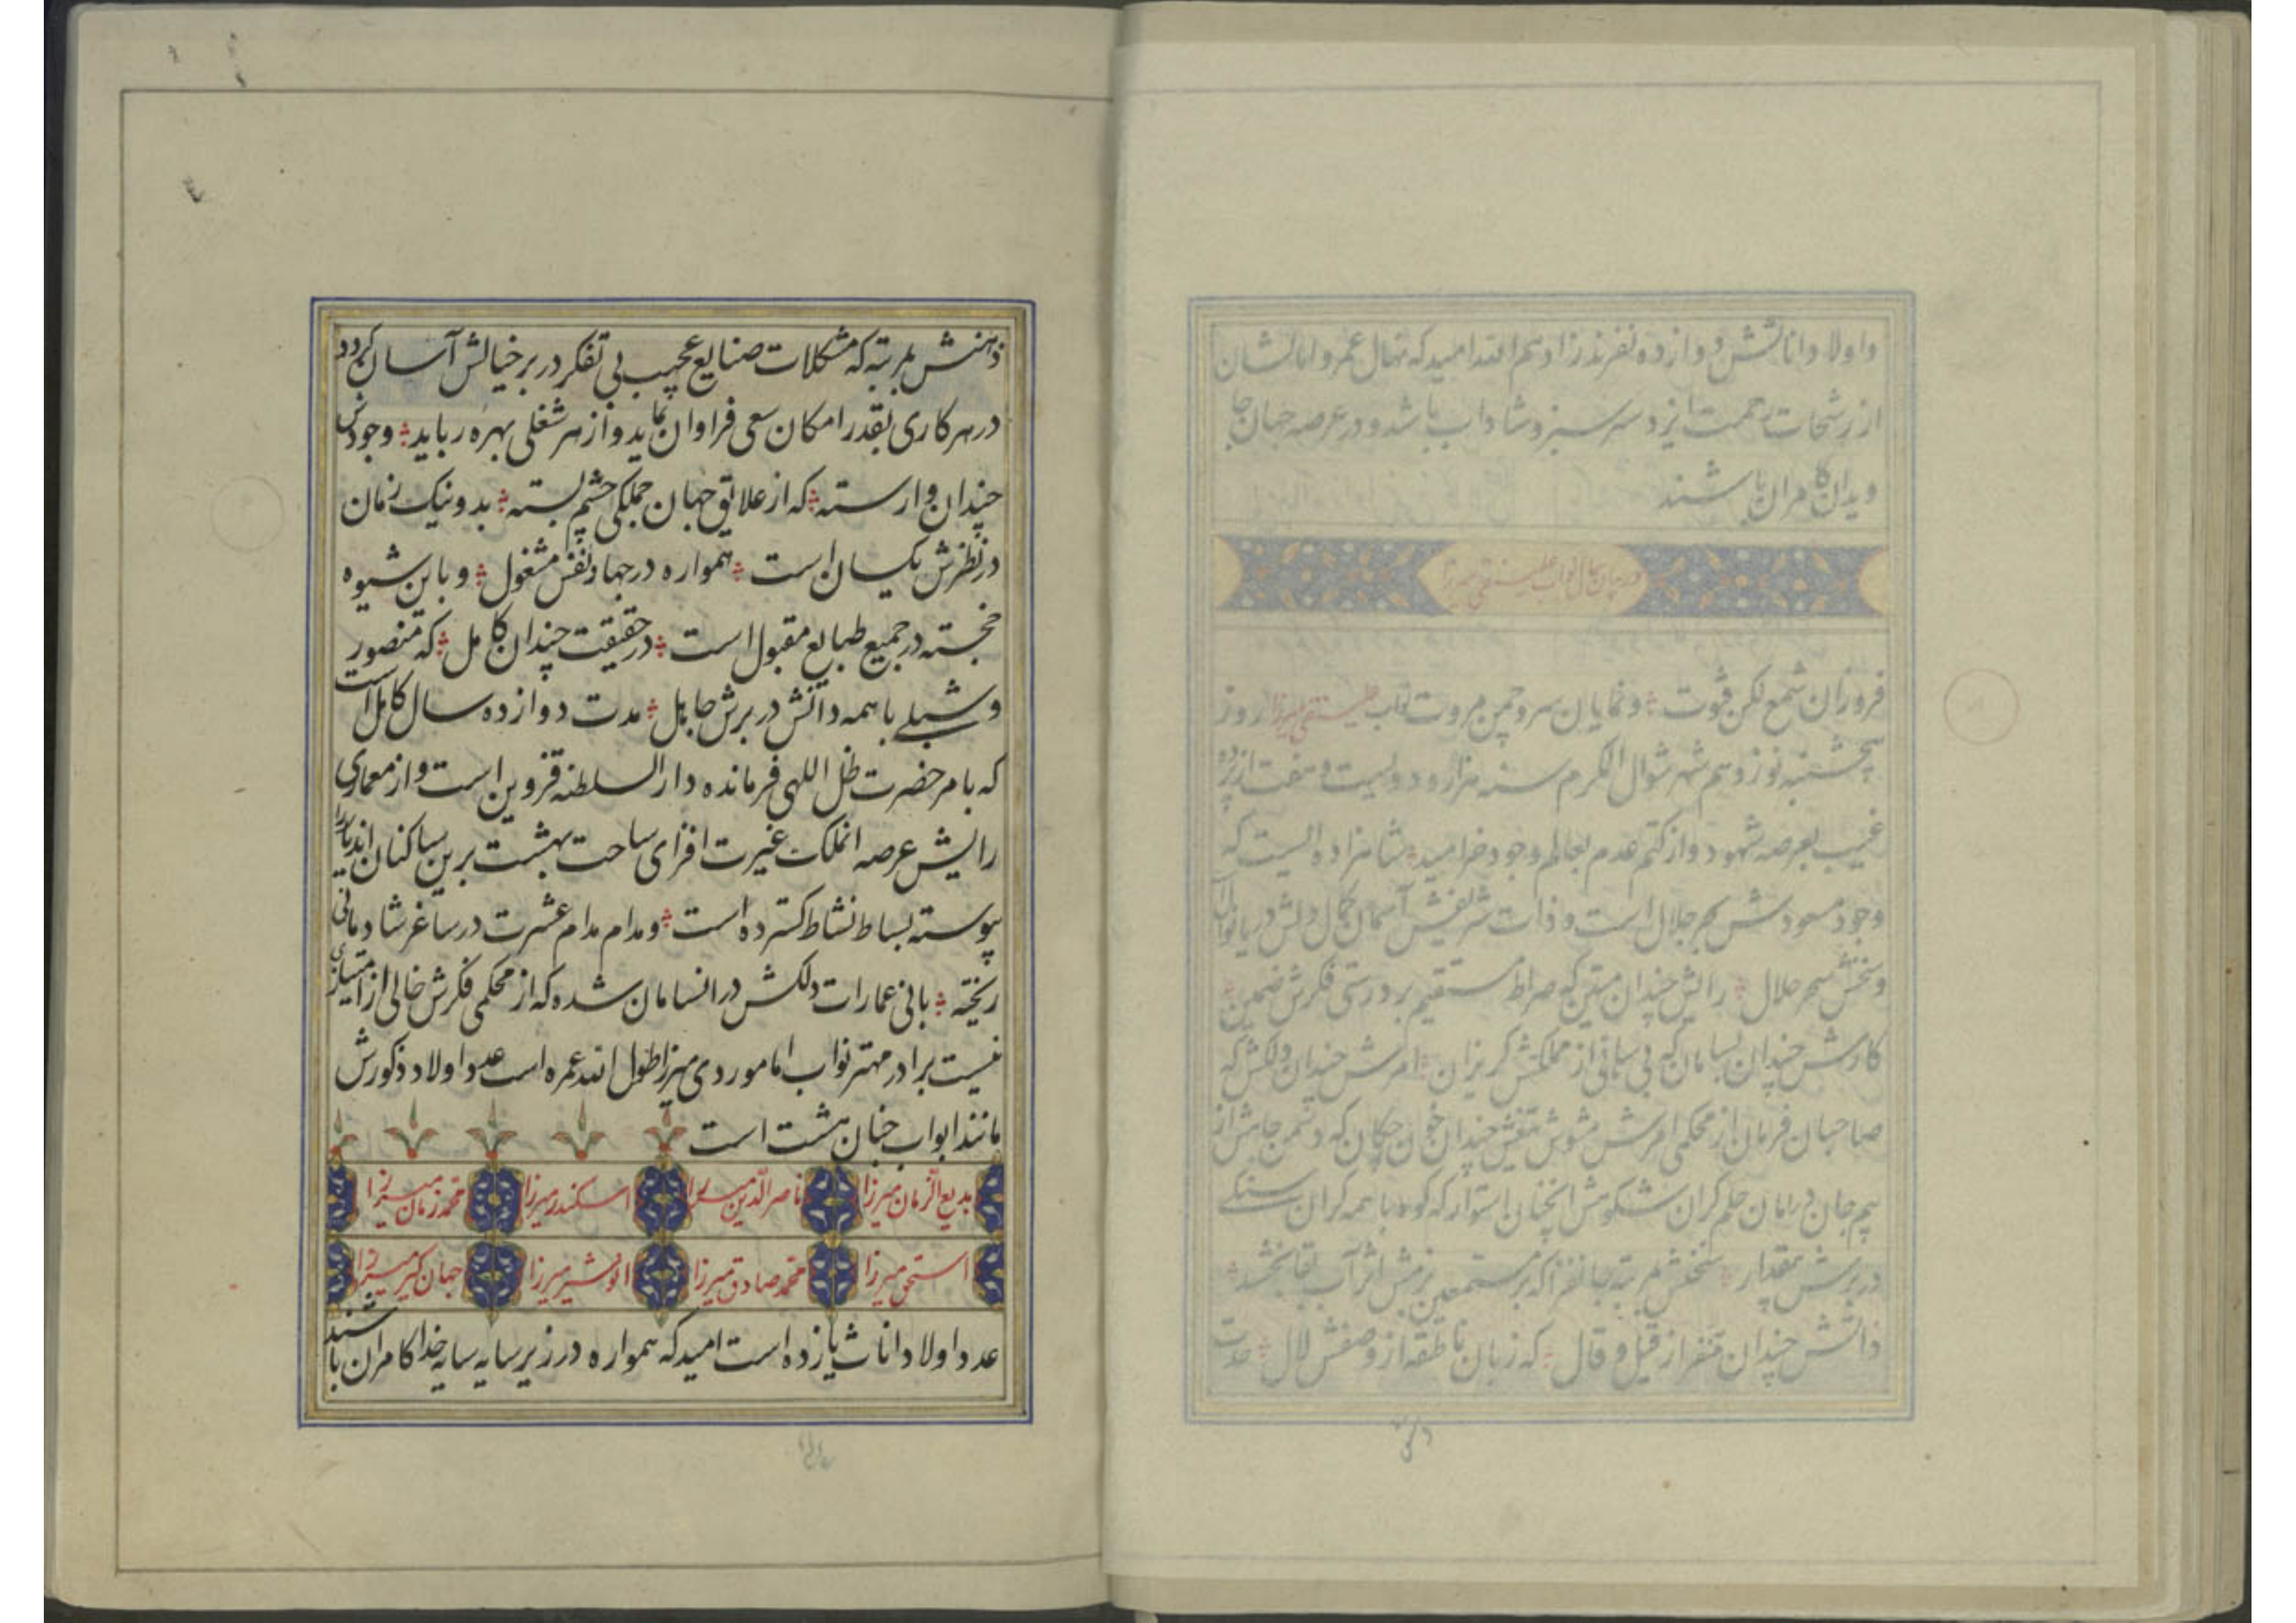 واولاد واناثش دوازده نفرند زادهم الله امید که نهال عمر و امالشان
از رشحات رحمت ایزد سرسبز و شاداب باشد و در عرصه جهان جا
ویدان کامران باشند
در بیان حال نواب علینقی میرزا
فروزان شمع لکن فتوت و نمایان سرو چمن مروت نواب علینقی میرزا روز
پنجشنبه نوزدهم شهر شوال المکرم سنه هزار و دویست و هفت از پرده
غیب بعرصه شهود و از کتم عدم بعالم وجود خرامید شاهزاده ایست که
وجود مسعودش بحر جلال است و ذات شریفش آسمان کمال دلش دریا نوال
و سخنش سحر حلال رایش چندان متین که صراط مستقیم بر درستی فکرش ضمین
کارش چندان بسامان که بی سامانی از مملکتش گریزان امرش چندان دلکش که
صاحبان فرمان از محکمی امرش مشوش تیغش چندان خون چکان که دشمن جانش از
بیم جان در امان حلم گران شکوهش انچنان استوار که کوه با همه گران سنگی
در برش بمقدار سخنش بمرتبه جانفزا که بر مستمعین بزمش اثر آب بقا بخشد
ذاتش چندان متنفر از قیل و قال که زبان ناطقه از وصفش لال عدت
ذهنش بمرتبه که مشکلات صنایع عجیب بی تفکر در بر خیالش آسان گردد
در هر کاری بقدر امکان سعی فراوان نماید و از هر شغلی بهره رباید وجودش
چندان وارسته که از علایق جهان جملگی چشم بسته بد و نیک زمان
در نظرش یکسان است همواره در جهاد نفس مشغول و باین شیوه
خجسته در جمیع طبایع مقبول است در حقیقت چندان کامل که منصور
و شبلے با همه دانش در برش جاهل مدت دوازده سال کامل است
که بامر حضرت ظل اللهی فرمانده دار السلطنه قزوین است و از معماری
رایش عرصه انملکت غیرت افزای ساحت بهشت برین بساکنان اندیار
پیوسته بساط نشاط گسترده است و مدام مدام عشرت در ساغر شادمانی
ریخته بانی عمارات دلکش در انسامان شده که از محکمی فکرش خالی از امتیازی
نیست برادر مهتر نواب امام وردی میرزا طول الله عمره است عدد اولاد ذکورش
مانند ابواب جنان هشت است
بدیع الزمان میرزا ناصر الدین میرزا اسکندر میرزا محمد زمان میرزا
اسحق میرزا محمد صادق میرزا انوشیر میرزا جهان گیر میرزا
عدد اولاد اناث یازده است امید که همواره در زیر سایه سایه خدا کامران باشند